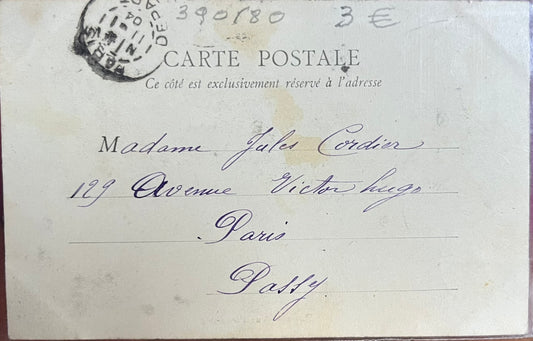 390/80 3 €
PARIS
DEPART
11
04
CARTE POSTALE
Ce côté est exclusivement réservé à l'adresse
Madame Jules Cordier
129 Avenue Victor hugo
Paris
Passy.